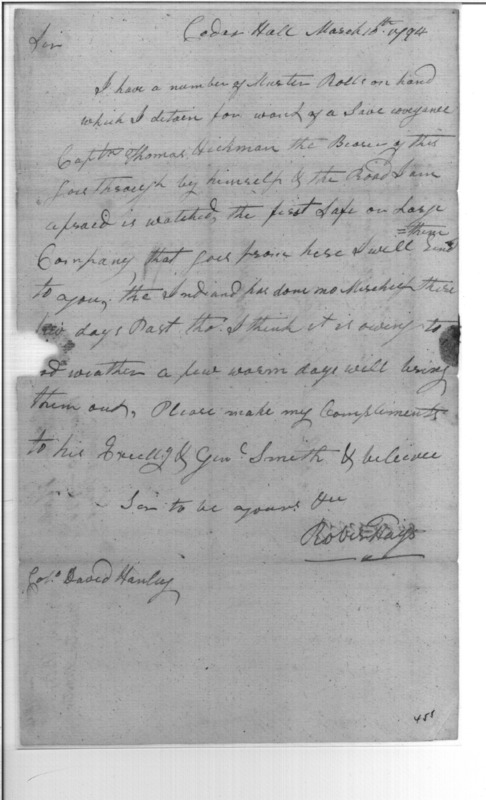 Cedar Hall March 6th 1794
Sir
I have a number of Muster Rolls on hand
which I detain for want of a Save conveyance
Captn Thomas Hickman the Bearer of this
goes through by himself & the Road I am
afraid is watched, the first Safe or Large
=them
Company that goes from here I will send
to you, the Indians has done no Mischief these
few days Past tho. I think it is owing to
weather a few warm days will bring
them out, Please make my Compliments
to his Excelly & Genl. Smith & beleeve
Sir to be yours &c
Robt. Hays
Col. David Henley